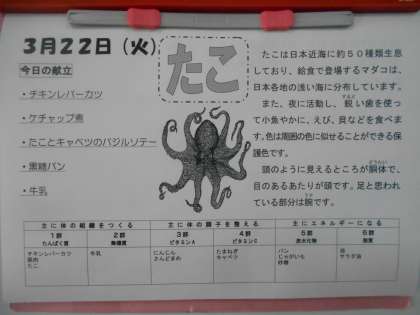 3月22日（火）
たこ
今日の献立
・チキンレバーカツ
・ケチャップ煮
・たことキャベツのバジルソテー
・黒糖パン
・牛乳
たこは日本近海に約50種類生息
しており、給食で登場するマダコは、
日本各地の浅い海に分布しています。
また、夜に活動し、鋭い歯を使っ
て小魚やかに、えび、貝などを食べま
す。色は周囲の色に似せることができる保
護色です。
頭のように見えるところが胴体で、
目のあるあたりが頭です。足と思われ
ている部分は腕です。
主に体の組織をつくる 主に体の調子を整える 主にエネルギーになる
1群 2群 3群 4群 5群 6群
たんぱく質 無機質 ビタミンA ビタミンC 炭水化物 脂質
チキンレバーカツ 牛乳 にんじん たまねぎ パン 油
豚肉 さんどまめ キャベツ じゃがいも サラダ油
たこ 砂糖